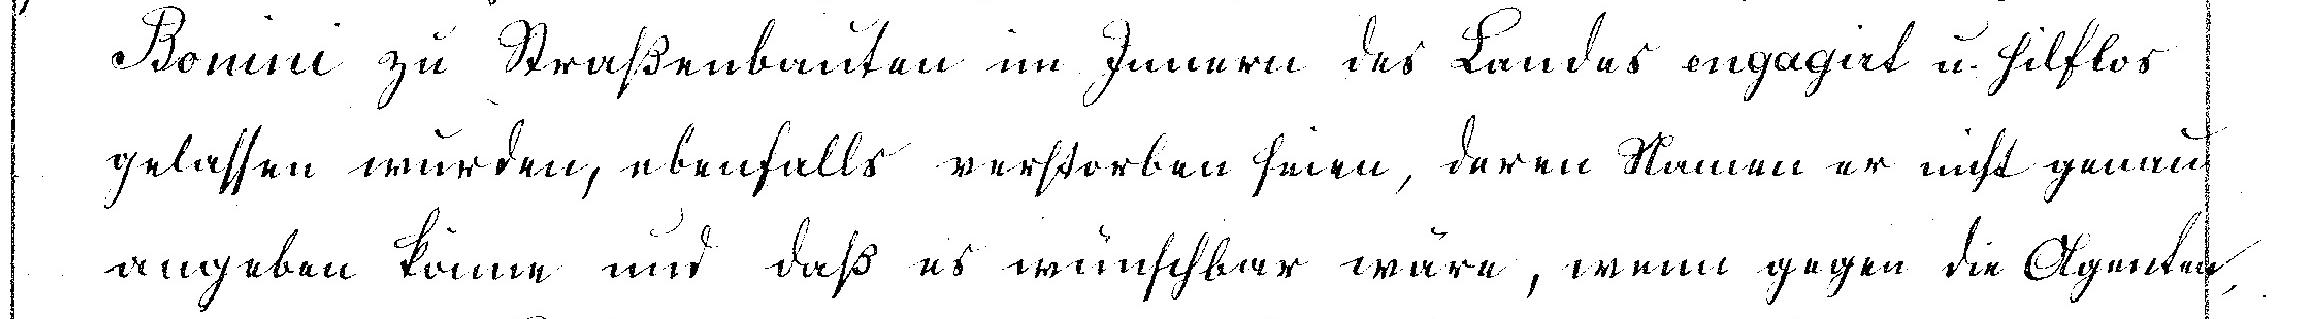 Bonini zu Straßenbauten im Innern des Landes engagirt u. hilflos
gelassen wurden, ebenfalls verstorben seien, deren Namen er nicht genau
angeben könne und daß es wünschbar wäre, wenn gegen die Agenten,